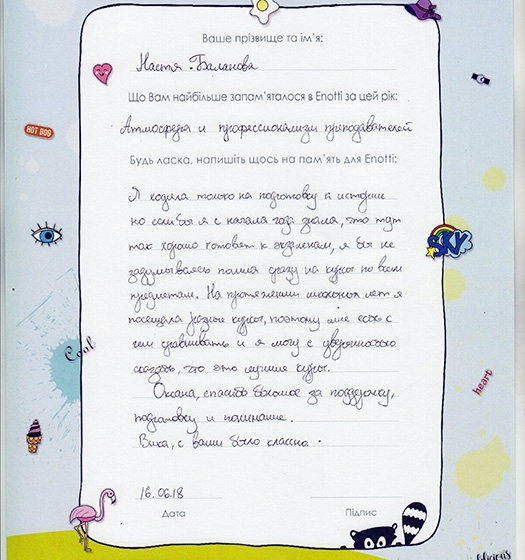 Ваше прізвище та ім'я:
Настя Баланова
Що Вам найбільше запам'яталося в Enotti за цей рік:
Атмосфера и профессионализм преподавателей
Будь ласка, напишіть щось на пам'ять для Enotti:
Я ходила только на подготовку к истории
но если бы я с начала года знала, что тут
так хорошо готовят к экзаменам, я бы не
задумываясь пошла сразу на курсы по всем
предметам. На протяжении школьных лет я
посещала разные курсы, поэтому мне есть с
чем сравнивать и я могу с уверенностью
сказать, что это лучшие курсы.
Оксана, спасибо большое за поддержку,
подготовку и понимание.
Вика, с вами было классно.
16.06.18
Дата
Підпис
HOT DOG
SKY
Cool
heart